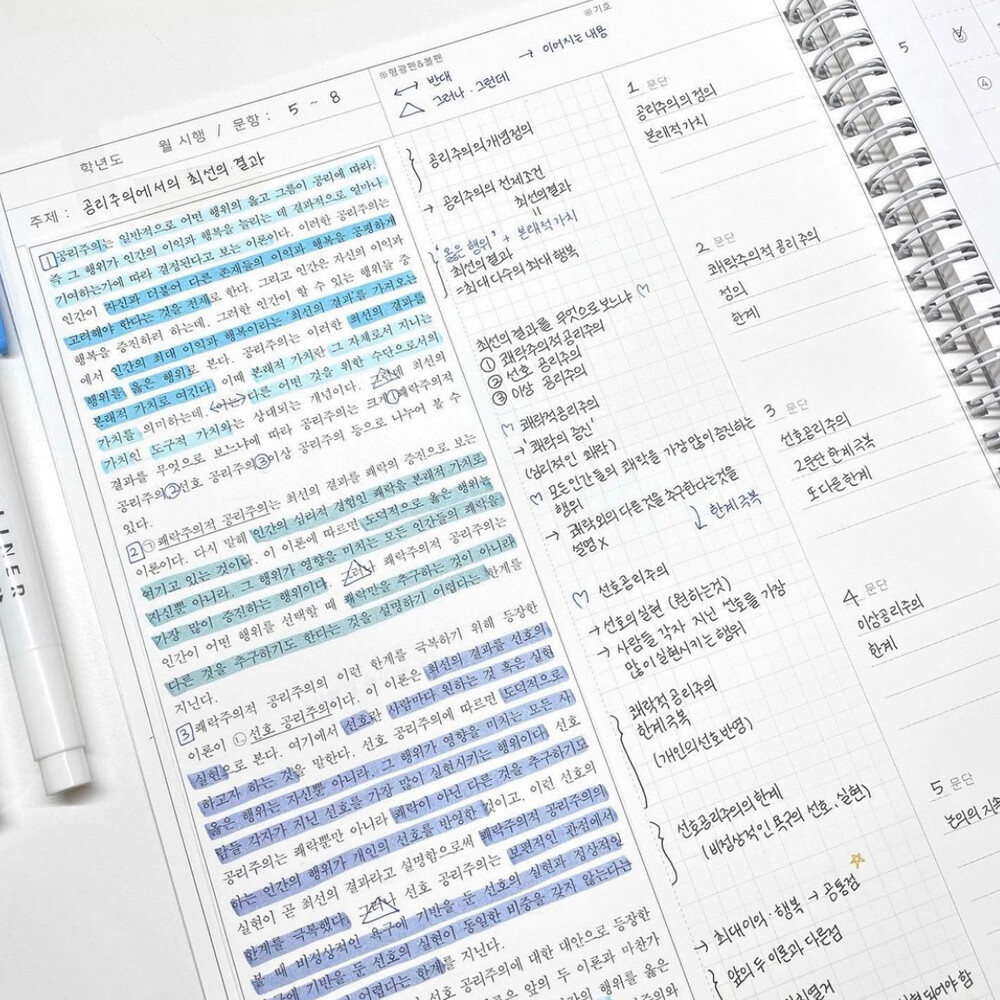 학년도 월 시행 / 문항 : 5 ~ 8
주제 : 공리주의에서의 최선의 결과
1 공리주의는 일반적으로 어떤 행위의 옳고 그름이 공리에 따라,
즉 그 행위가 인간의 이익과 행복을 늘리는 데 결과적으로 얼마나
기여하는가에 따라 결정된다고 보는 이론이다. 이러한 공리주의는
인간이 자신과 더불어 다른 존재들의 이익과 행복을 공평하게
고려해야 한다는 것을 전제로 한다. 그리고 인간은 자신의 이익과
행복을 증진하려 하는데, 그러한 인간이 할 수 있는 행위들 중
에서 인간의 최대 이익과 행복이라는 '최선의 결과'를 가져오는
행위를 옳은 행위로 본다. 공리주의는 이러한 최선의 결과를
본래적 가치로 여긴다. 이때 본래적 가치란 그 자체로서 지니는
가치를 의미하는데, 이는 다른 어떤 것을 위한 수단으로서의
가치인 도구적 가치와는 상대되는 개념이다. 그런데 최선의
결과를 무엇으로 보느냐에 따라 공리주의는 크게 ① 쾌락주의적
공리주의, ② 선호 공리주의, ③ 이상 공리주의 등으로 나누어 볼 수
있다.
2 ㉠ 쾌락주의적 공리주의는 최선의 결과를 쾌락의 증진으로 보는
이론이다. 다시 말해 인간의 심리적 경험인 쾌락을 본래적 가치로
여기고 있는 것이다. 이 이론에 따르면 도덕적으로 옳은 행위는
자신뿐 아니라, 그 행위가 영향을 미치는 모든 인간들의 쾌락을
가장 많이 증진하는 행위이다. 그러나 쾌락주의적 공리주의는
인간이 어떤 행위를 선택할 때 쾌락만을 추구하는 것이 아니라
다른 것을 추구하기도 한다는 것을 설명하기 어렵다는 한계를
지닌다.
3 쾌락주의적 공리주의의 이런 한계를 극복하기 위해 등장한
이론이 ㉡ 선호 공리주의이다. 이 이론은 최선의 결과를 선호의
실현으로 본다. 여기에서 선호란 사람마다 원하는 것 혹은 실현
하고자 하는 것을 말한다. 선호 공리주의에 따르면 도덕적으로
옳은 행위는 자신뿐 아니라, 그 행위가 영향을 미치는 모든 사
람들 각자가 지닌 선호를 가장 많이 실현시키는 행위이다. 선호
공리주의는 쾌락뿐만 아니라 쾌락이 아닌 다른 것을 추구하기도
하는 인간의 행위가 개인의 선호를 반영한 것이고, 이런 선호의
실현이 곧 최선의 결과라고 설명함으로써 쾌락주의적 공리주의의
한계를 극복했다. 그러나 선호 공리주의는 보편적인 관점에서
볼 때 비정상적인 욕구에 기반을 둔 선호의 실현과 정상적인
기반을 둔 선호의 실현이 동일한 비중을 갖지 않는다는
어렵다는 한계를 지닌다.
선호 공리주의에 대한 대안으로 등장한
앞의 두 이론과 마찬가
행위를 옳은
※형광펜&볼펜
↔ 반대
△ 그러나 · 그런데
※기호
→ 이어지는 내용
공리주의의 개념정의
→ 공리주의의 전제조건
최선의결과
"
'옳은 행위' + 본래적 가치
최선의 결과
=최대 다수의 최대 행복
최선의 결과를 무엇으로 보느냐 ♡
① 쾌락주의적 공리주의
② 선호 공리주의
③ 이상 공리주의
♡ 쾌락적공리주의
→ '쾌락의 증진'
(심리적인 쾌락)
♡ 모든 인간들의 쾌락을 가장 많이 증진하는
행위
→ 쾌락외의 다른 것을 추구한다는것을
설명 X
↓ 한계 극복
♡ 선호공리주의
→ 선호의 실현 (원하는것)
→ 사람들 각자 지닌 선호를 가장
많이 실현시키는 행위
쾌락적 공리주의
한계극복
(개인의 선호 반영)
선호공리주의의 한계
(비정상적인 욕구의 선호, 실현)
→ 최대이익·행복 → 공통점
→ 앞의 두 이론과 다른점
1 문단
공리주의의 정의
본래적 가치
2 문단
쾌락주의적 공리주의
정의
한계
3 문단
선호공리주의
2문단 한계 극복
또 다른 한계
4 문단
이상공리주의
한계
5 문단
논의의
5
④